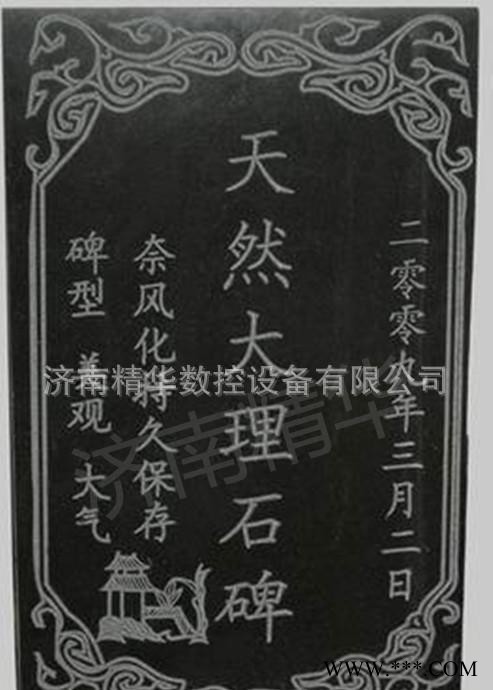 二零零九年三月二日
天然大理石碑
奈风化持久保存
碑型 美观 大气
济南精华数控设备有限公司
济南精华
WWW.***.COM